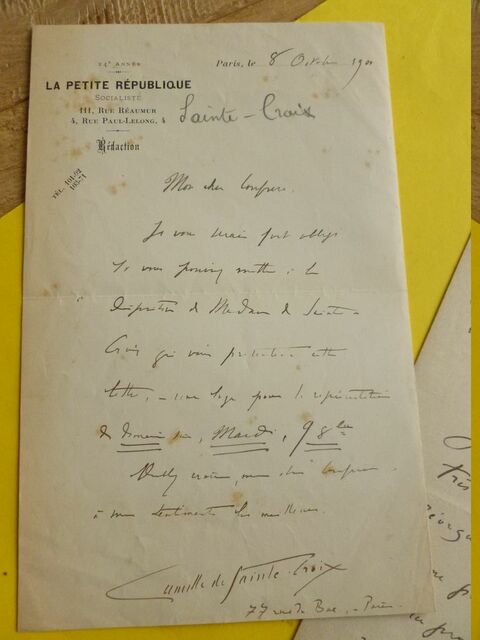 24e ANNÉE
Paris, le 8 Octobre 190
LA PETITE RÉPUBLIQUE
SOCIALISTE
111, RUE RÉAUMUR
4, RUE PAUL-LELONG, 4
Sainte-Croix
Rédaction
TÉL. 101-92
Mon cher Confrère,
Je vous serais fort obligé
si vous pouviez mettre à la
disposition de Madame de Sainte-
Croix qui vous présentera cette
lettre, - une loge pour la représentation
de demain soir, Mardi,
Veuillez croire, mon cher Confrère,
à mes sentiments les meilleurs.
Camille de Sainte-Croix
77 rue du Bac, - Paris